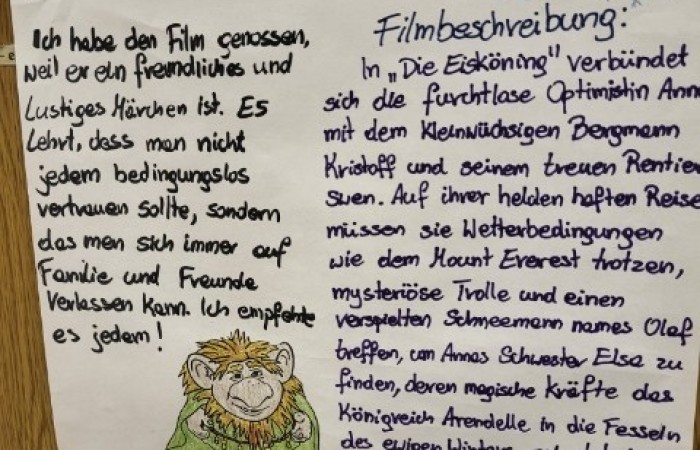 Ich habe den Film genossen,
weil er ein freundliches und
Lustiges Märchen ist. Es
Lehrt, dass man nicht
jedem bedingungslos
vertrauen sollte, sondern
das men sich immer auf
Familie und Freunde
verlassen kann. Ich empfehte
es jedem!
Filmbeschreibung:
In „Die Eisköning" verbündet
sich die furchtlase Optimistin Anna
mit dem kleinwüchsigen Bergmann
Kristoff und seinem treuen Rentier
Swen. Auf ihrer helden haften Reise
müssen sie Wetterbedingungen
wie dem Mount Everest trotzen,
mysteriöse Trolle und einen
verspielten Schneemann names Olaf
treffen, um Annas Schwester Elsa zu
finden, deren magische Kräfte das
Königreich Arendelle in die Fesseln
des ewigen Winters